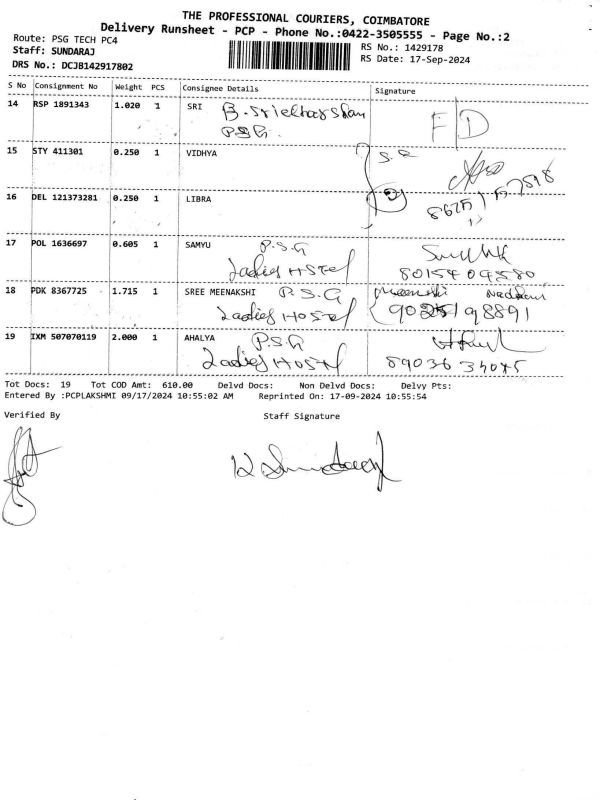 THE PROFESSIONAL COURIERS, COIMBATORE
Delivery Runsheet - PCP - Phone No.:0422-3505555 - Page No.:2
Route: PSG TECH PC4
RS No.: 1429178
Staff: SUNDARAJ
RS Date: 17-Sep-2024
DRS No.: DCJB142917802
S No Consignment No Weight PCS Consignee Details Signature
14 RSP 1891343 1.020 1 SRI B. FD
P.S.G.
15 STY 411301 0.250 1 VIDHYA S.R
16 DEL 121373281 0.250 1 LIBRA
17 POL 1636697 0.605 1 SAMYU P.S.G
Ladies HSTel 8015409580
18 PDK 8367725 1.715 1 SREE MEENAKSHI P.S.G Meenakshi
Ladies HOSTel
19 IXM 507070119 2.000 1 AHALYA P.S.G
Ladies HOSTel
Tot Docs: 19 Tot COD Amt: 610.00 Delvd Docs: Non Delvd Docs: Delvy Pts:
Entered By :PCPLAKSHMI 09/17/2024 10:55:02 AM Reprinted On: 17-09-2024 10:55:54
Verified By Staff Signature